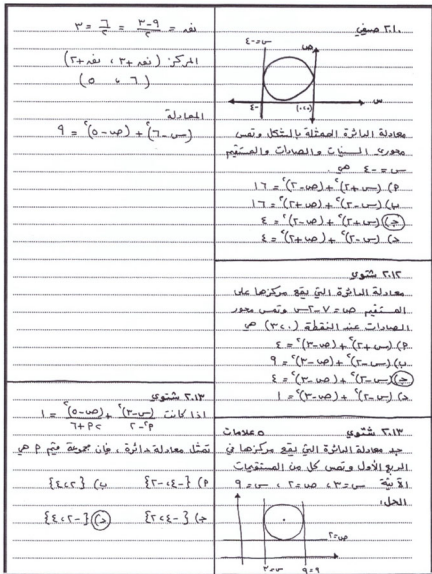 ٢٠١٠ صيفي
ص
س = -٤
س
-٤
(٠،٠)
معادلة الدائرة الممثلة بالشكل وتمس
محوري السينات والصادات والمستقيم
س = -٤ هي
أ) (س+٢)² + (ص-٢)² = ١٦
ب) (س-٢)² + (ص+٢)² = ١٦
ج) (س+٢)² + (ص-٢)² = ٤
د) (س-٢)² + (ص+٢)² = ٤
٢٠١٢ شتوي
معادلة الدائرة التي يقع مركزها على
المستقيم ص = ٧-٢س وتمس محور
الصادات عند النقطة (٣،٠) هي
أ) (س+٢)² + (ص-٣)² = ٤
ب) (س-٢)² + (ص-٣)² = ٩
ج) (س-٢)² + (ص-٣)² = ٤
د) (س-٢)² + (ص-٣)² = ١
٢٠١٣ شتوي ٥ علامات
جد معادلة الدائرة التي يقع مركزها في
الربع الأول وتمس كل من المستقيمات
الآتية س=٣، ص=٢، س=٩
الحل:
ص=٢
س=٣
س=٩
نق = (٩-٣)/٢ = ٦/٢ = ٣
المركز (نق+٣، نق+٢)
(٦، ٥)
المعادلة
(س-٦)² + (ص-٥)² = ٩
٢٠١٣ شتوي
اذا كانت (س-٣)²/(أ²-٢) + (ص-٥)²/(أ٢+٦) = ١
تمثل معادلة دائرة، فإن مجموعة قيم أ هي
أ) {-٤،-٢} ب) {٢،٤}
ج) {-٤،٢} د) {-٢،٤}